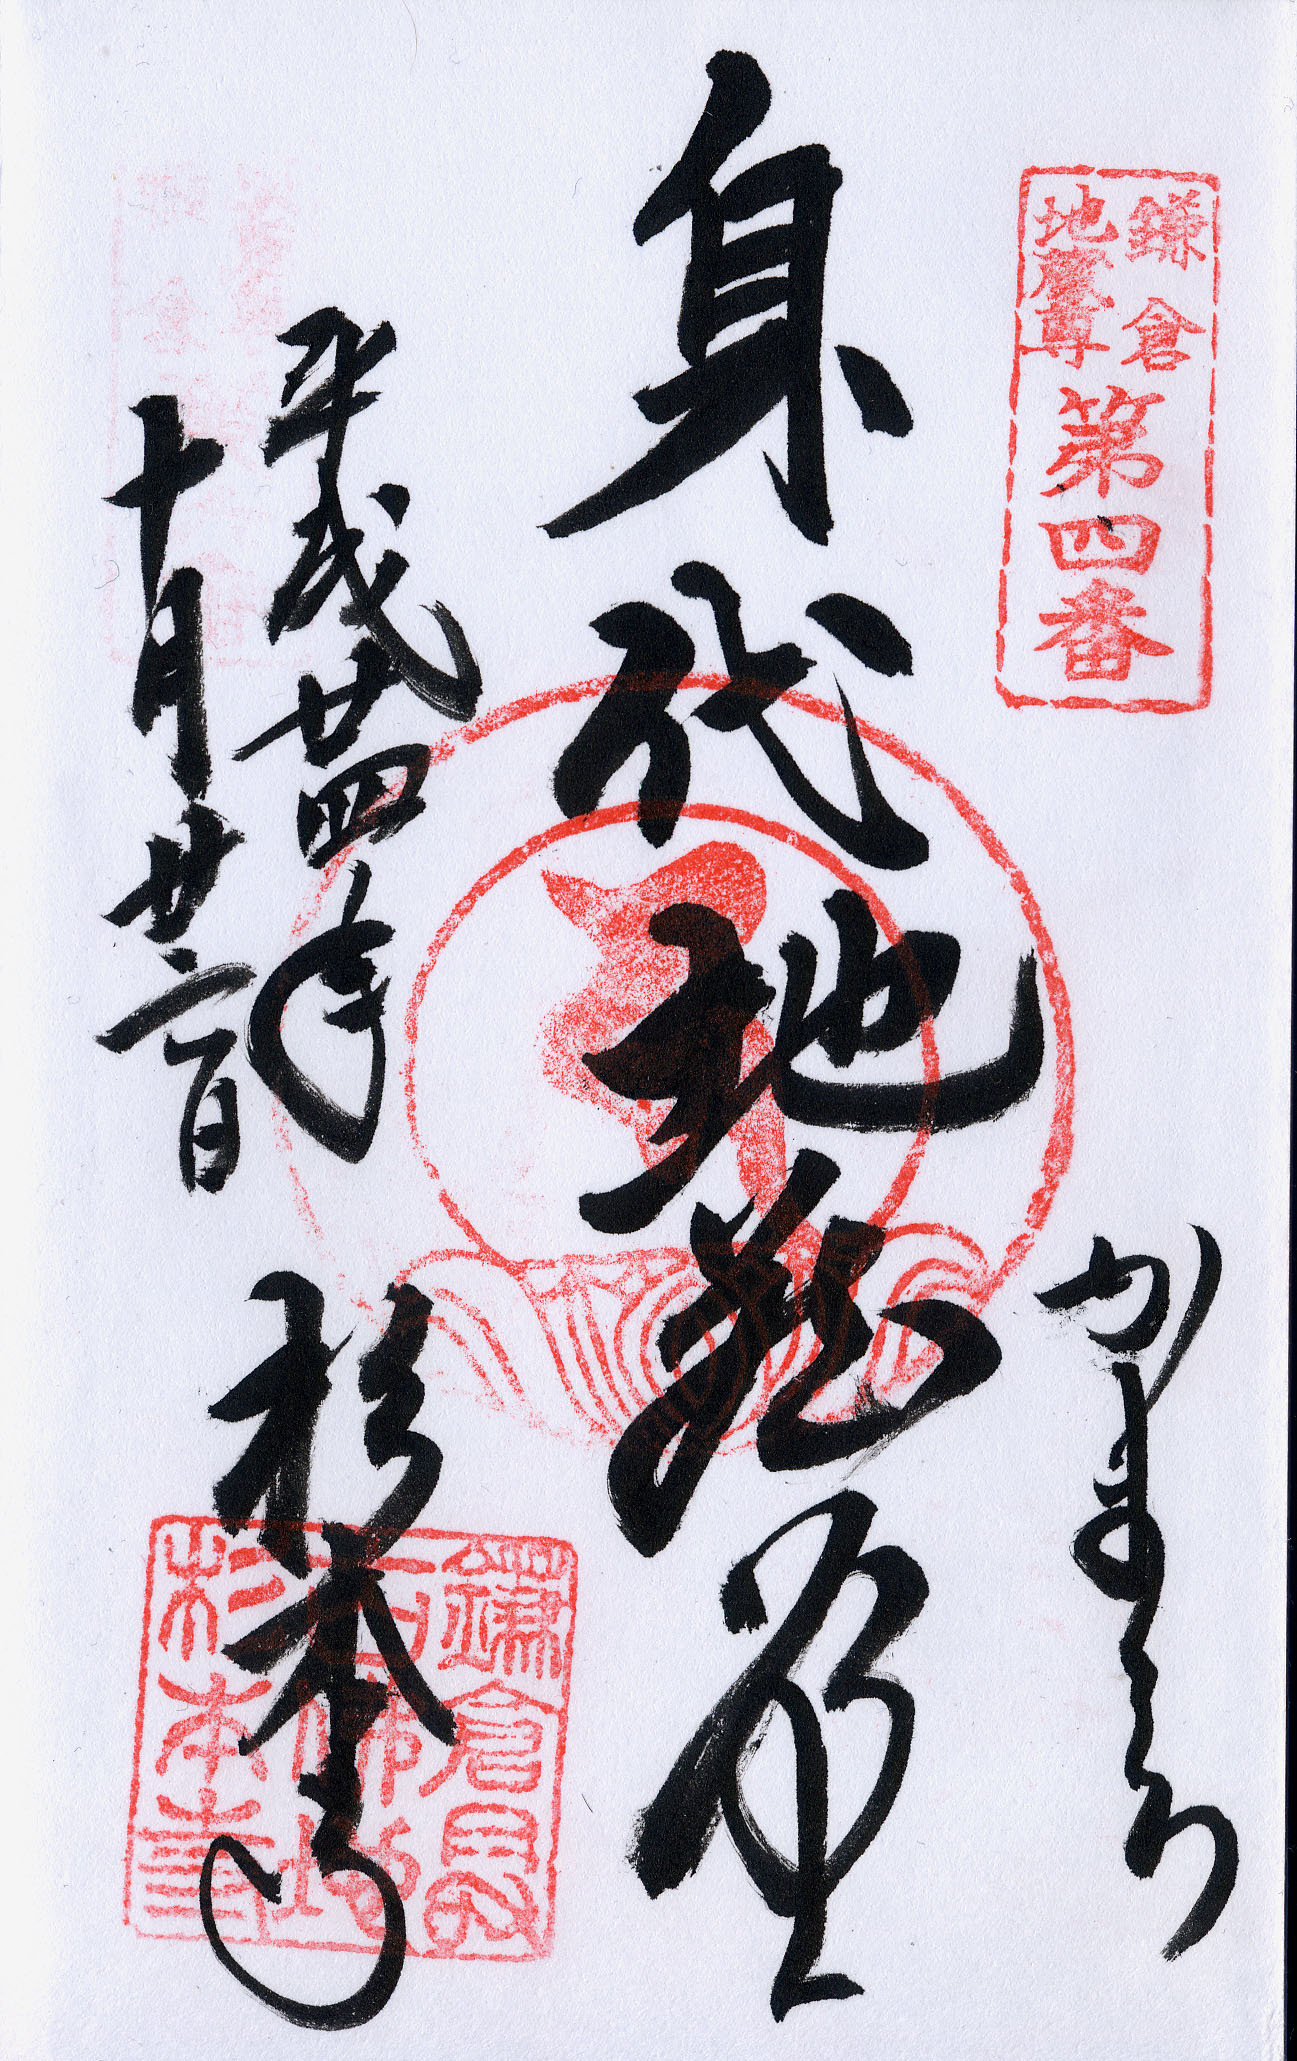 鎌倉
地蔵尊
第四番
かまくら
身代地蔵尊
平成廿四年
十月廿二日
杉本寺
鎌倉最
杉本寺